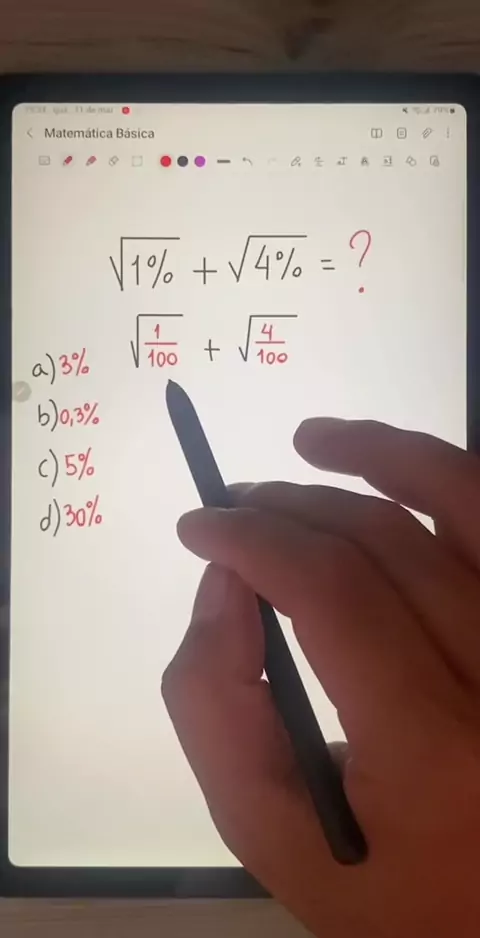 Matemática Básica
√1% + √4% = ?
√1/100 + √4/100
a) 3%
b) 0,3%
c) 5%
d) 30%